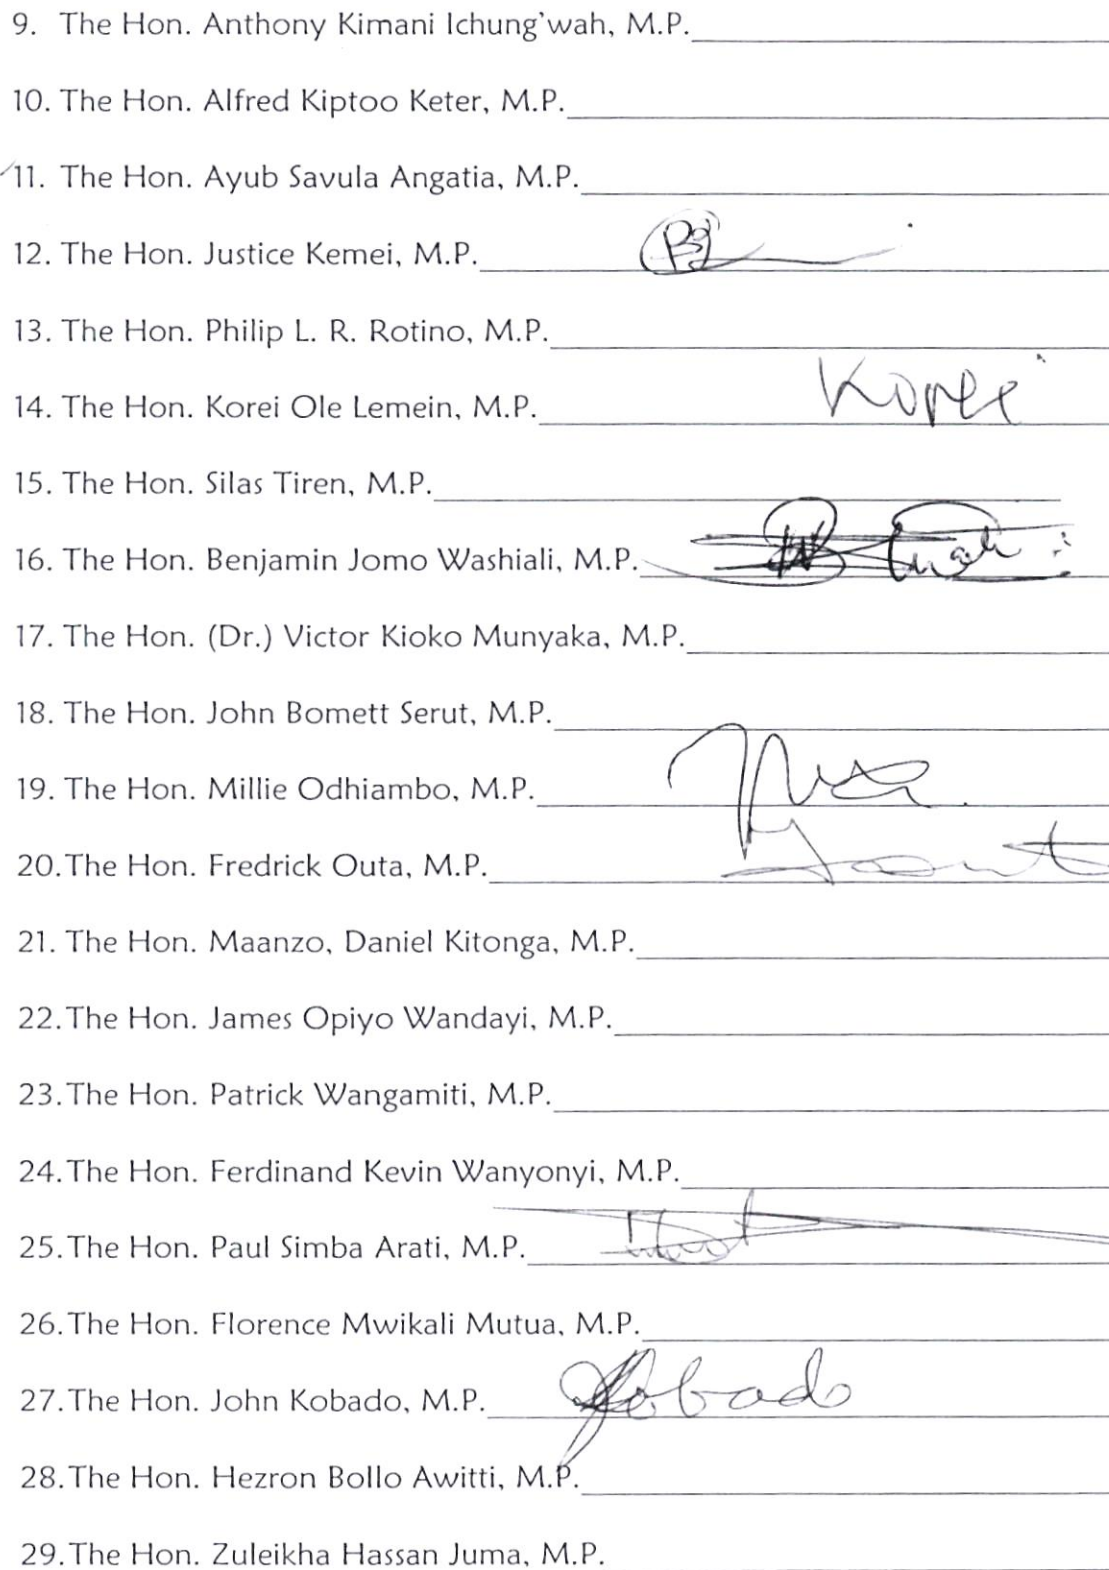 9. The Hon. Anthony Kimani Ichung'wah, M.P.
10. The Hon. Alfred Kiptoo Keter, M.P.
11. The Hon. Ayub Savula Angatia, M.P.
12. The Hon. Justice Kemei, M.P.
13. The Hon. Philip L. R. Rotino, M.P.
14. The Hon. Korei Ole Lemein, M.P. Korei
15. The Hon. Silas Tiren, M.P.
16. The Hon. Benjamin Jomo Washiali, M.P.
17. The Hon. (Dr.) Victor Kioko Munyaka, M.P.
18. The Hon. John Bomett Serut, M.P.
19. The Hon. Millie Odhiambo, M.P.
20. The Hon. Fredrick Outa, M.P.
21. The Hon. Maanzo, Daniel Kitonga, M.P.
22. The Hon. James Opiyo Wandayi, M.P.
23. The Hon. Patrick Wangamiti, M.P.
24. The Hon. Ferdinand Kevin Wanyonyi, M.P.
25. The Hon. Paul Simba Arati, M.P.
26. The Hon. Florence Mwikali Mutua, M.P.
27. The Hon. John Kobado, M.P. Kobado
28. The Hon. Hezron Bollo Awitti, M.P.
29. The Hon. Zuleikha Hassan Juma, M.P.